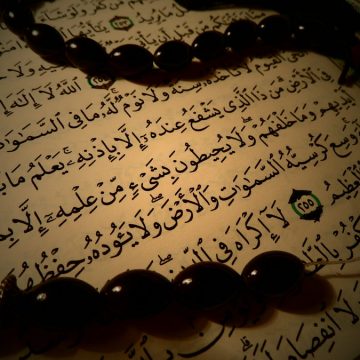 ٱللَّهُ لَآ إِلَٰهَ
ٱلْقَيُّومُ لَا تَأْخُذُهُۥ سِنَةٌ وَلَا نَوْمٌ لَّهُۥ مَا فِى ٱلسَّمَٰوَ
فِى ٱلْأَرْضِ مَن ذَا ٱلَّذِى يَشْفَعُ عِندَهُۥٓ إِلَّا بِإِذْنِهِۦ يَعْلَمُ مَا
أَيْدِيهِمْ وَمَا خَلْفَهُمْ وَلَا يُحِيطُونَ بِشَىْءٍ مِّنْ عِلْمِهِۦٓ إِلَّا
وَسِعَ كُرْسِيُّهُ ٱلسَّمَٰوَٰتِ وَٱلْأَرْضَ وَلَا يَـُٔودُهُۥ حِفْظُهُ
ٱلْعَظِيمُ ٢٥٥ لَآ إِكْرَاهَ فِى ٱلدِّينِ
لَا ٱنفِصَا